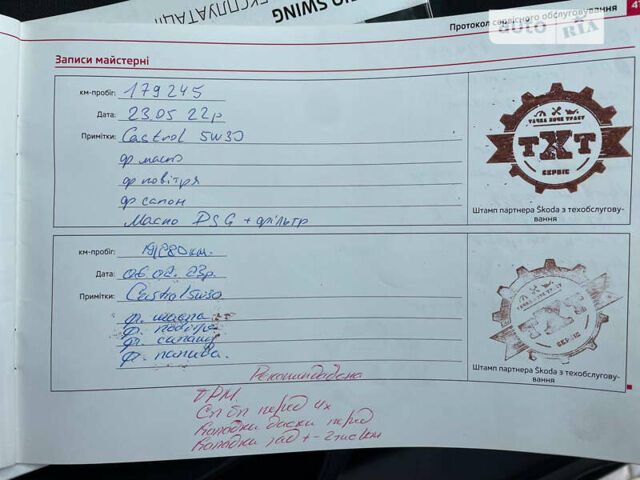 SWING
ЕКСПЛУАТАЦІЇ
Протокол сервісного обслуговування
auto RIA
Записи майстерні
км-пробіг: 179245
Дата: 23.05 22р
Примітки: Castrol 5w30
ф масло
ф повітря
ф салон
Масло DSG + фільтр
ТАЧКА ХОЧЕ ТРАСТ
ТХТ
СЕРВІС
Штамп партнера Škoda з техобслугову-
вання
км-пробіг:
Дата: 06.02.23р.
Примітки: Castrol 5w30
ф. масла
ф. повітря
ф. салону
ф. палива.
ТХТ
СЕРВІС
Штамп партнера Škoda з техобслугову-
вання
Рекомендована
ГРМ.
перед
Колодки диски перед
Колодки зад +-